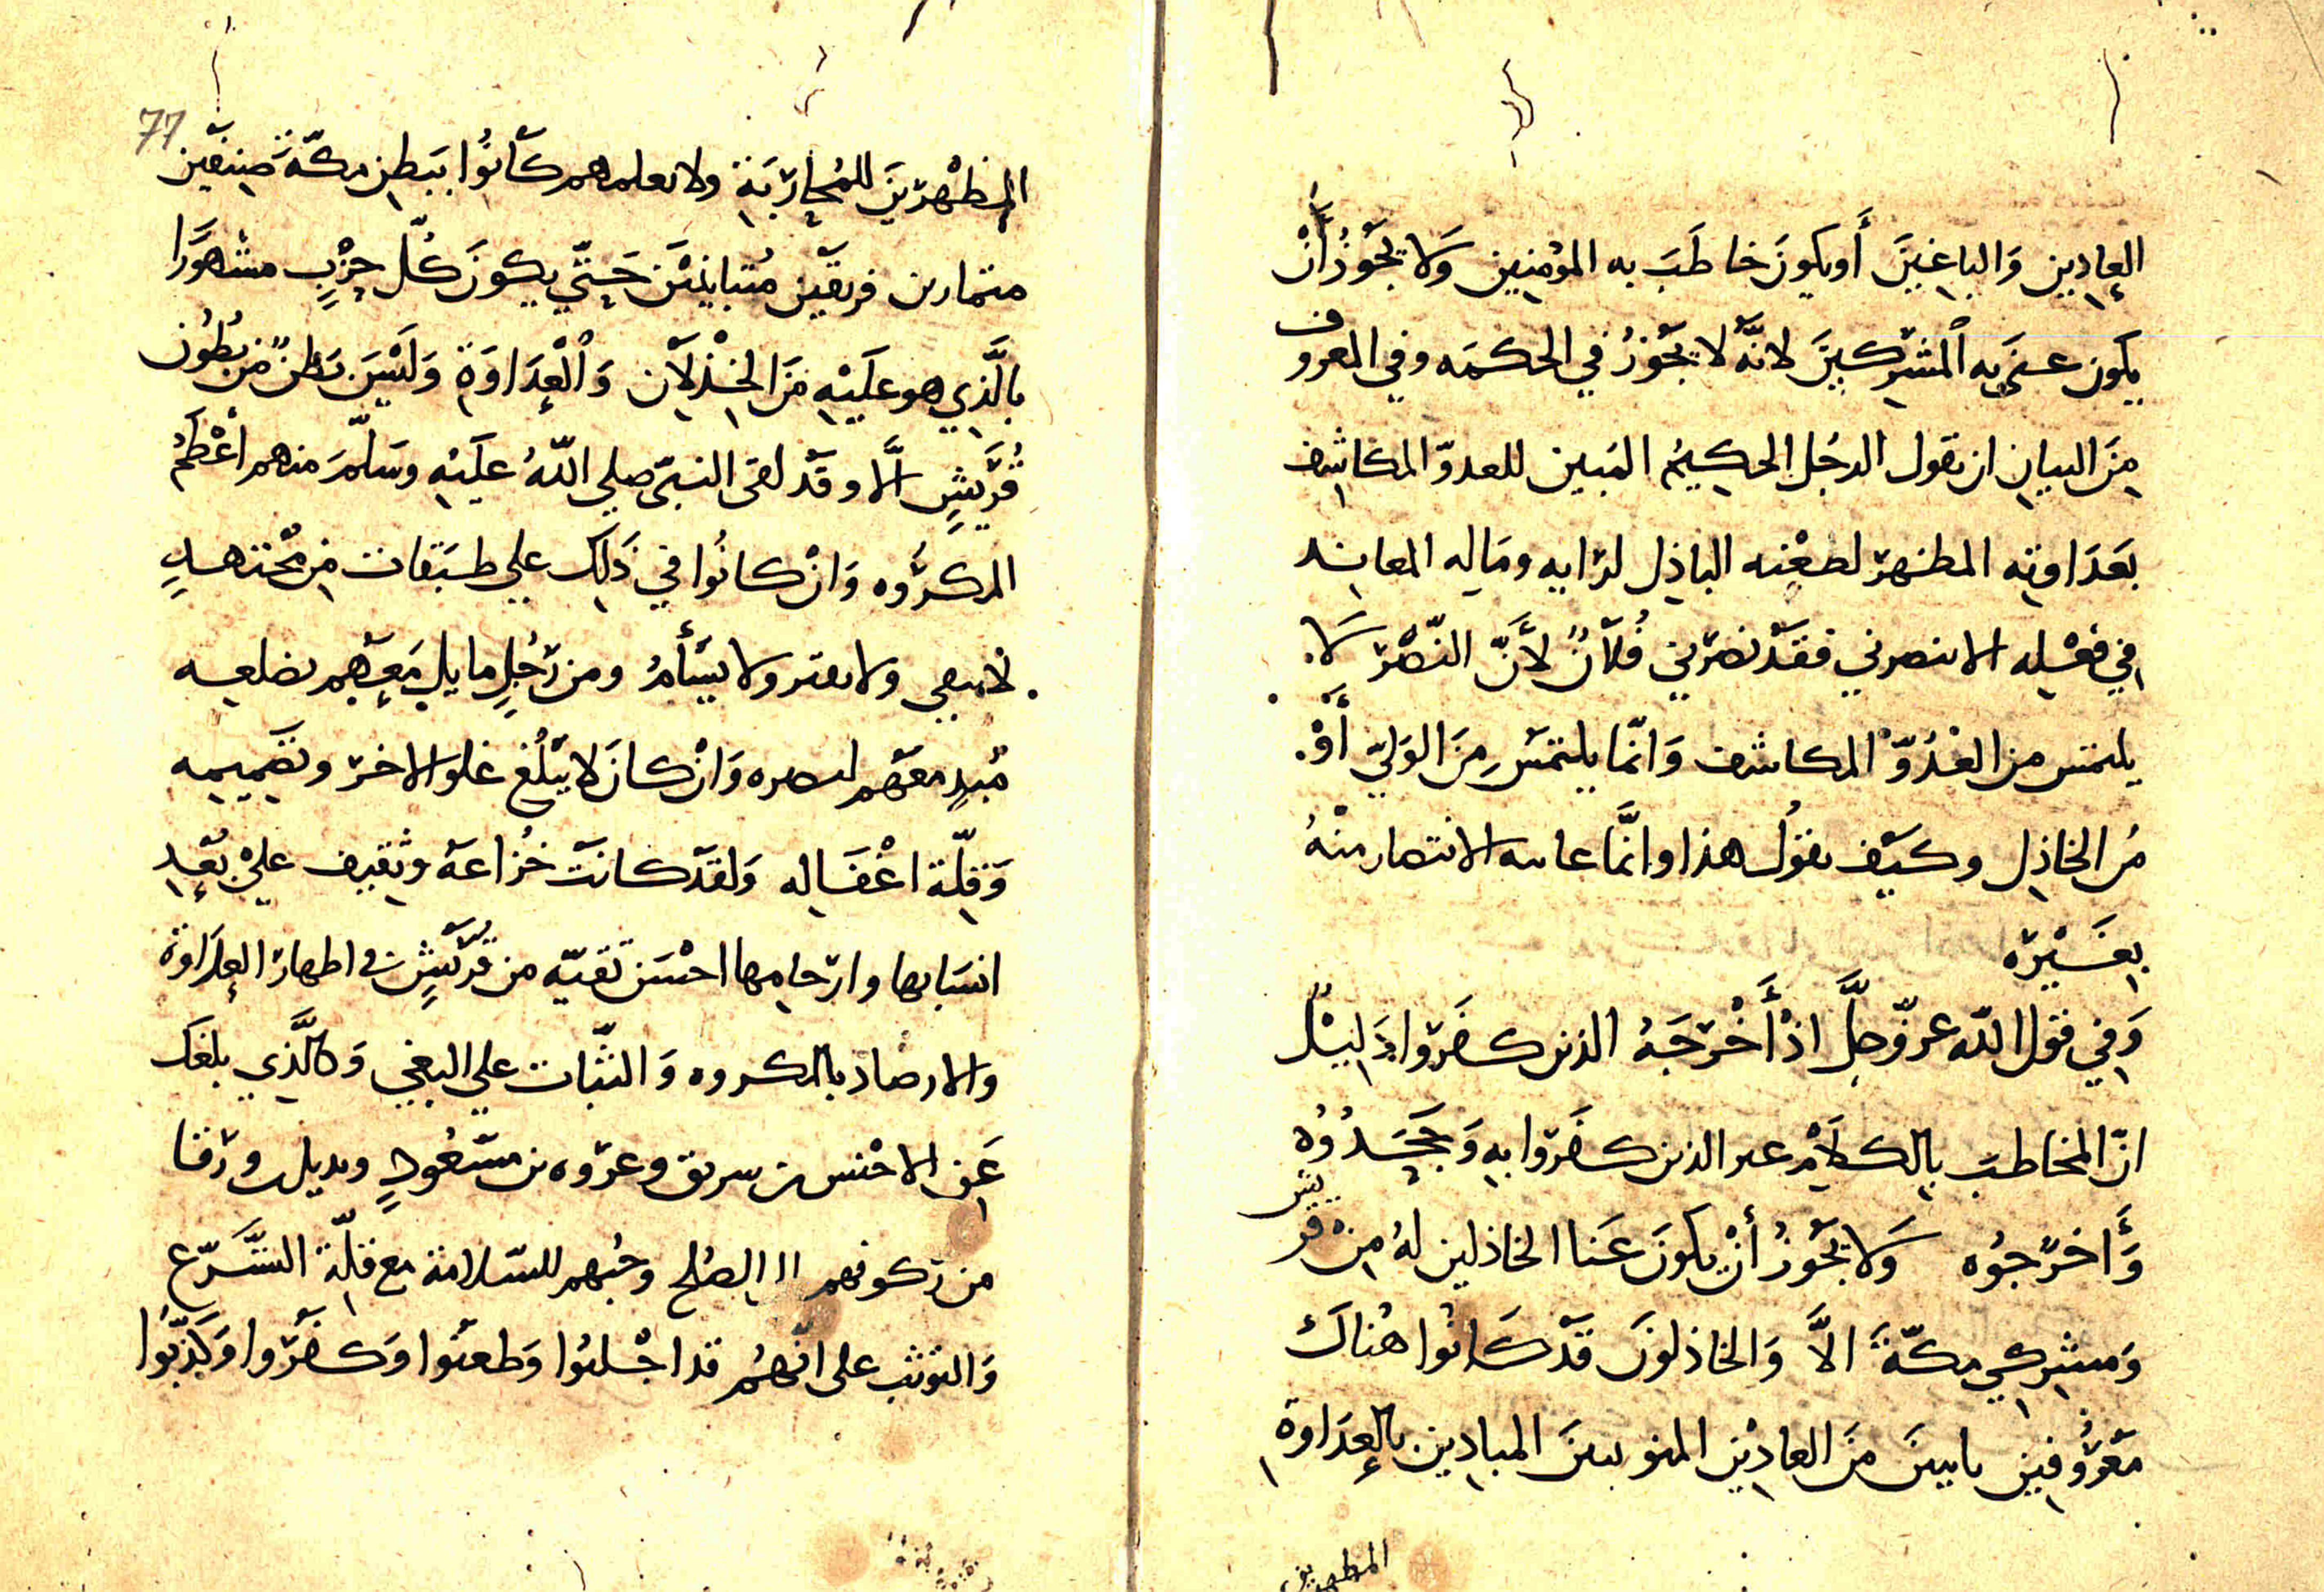 العادِيين وَالباغِينَ أَو يكونَ خاطَبَ به المؤمنِين وَلا يَجُوزُ أَنْ
يكون عنى به المُشركينَ لانَّه لا يجوزُ في الحكمه وفي المعروف
مِنَ البيانِ ان يقول الرجُل الحكيمُ المبين للعدوّ المكاشِف
بعَدَاوتِه المظهر لطعْنه الباذِل لرايه ومَالِه المعانِد
في فعْلِه الا تنصرني فقَدْ نصَرني فُلانٌ لأَنَّ النّصْرَ لَا
يلتمَس من العَدُوّ المكاشف وَانّما يلتمَس مِنَ الوَليّ أَوْ
مِن الخاذِل وكيف يقولُ هذا وانَّما عاتبه الانتصار منْهُ
بغَيْرِه
وَفِي قول اللّه عزّوجلَّ اذْ أَخْرجَهُ الذين كفَروا دَلِيْلٌ
انّ المخاطبَ بِالكلَامِ غير الذين كفَروا بهِ وَجحَدُوْهُ
وَأَخرَجوُه وَلا يجُوزُ أنْ يكونَ عَنا الخاذلين لهُ مِن قريش
وَمشركي مكّةَ الاَّ وَالخاذلونَ قدْ كَانُوا هُناكَ
معْرُوفين باينينَ منَ العادِيْن المنو بينَ المبادِين بالعِدَاوة
المظهرين
77
المظْهرينَ للمُحارَبَة ولا نعلمهم كانُوا ببَطنِ مكّةَ صِنفين
متمارين فريقين مُتباينيْن حَتّى يكونَ كُلّ حِزْبٍ مشهوَرًا
بالَّذِي هو عَلَيْهِ مَنَ الخِذْلَانِ وَالْعِدَاوَةِ وَليْسَ بَطنٌ مّن بُطُون
قُرَيْشٍ الَّا وقَدْ لقى النبيّ صلى اللّهُ عليْهِ وسَلّمَ منهم أعْظَمُ
المكرُوه وَانْ كانُوا في ذَلِك علي طبَقات مِن مْجتهدٍ
لا يبقي ولا يفتر ولا يسْأَمُ ومن رَجُلٍ مايلٍ مَعهم بضلعِه
مُبدٍ معَهم لنصره وَانْ كانَ لا يبْلُغ غلو الاخرّ وتصميمه
وَقِلّة اغْفَالِه وَلقدْ كانَتْ خُزاعَةُ وثقيف عليْ بُعْدِ
انسَابها وارحامِها احْسَن تقيّه من قُريْشٍ في اظهار العِدَاوة
والارصاد بالمكروه وَالثّبات علي البغي وَكالّذِي بلغك
عَنِ الاخْنس بن سريق وعرْوه بن مسْعُودٍ وبديل ورقا
من ركونهم الا الصُلحِ وحُبهم للسّلامة مع قلّة التسَّرّع
وَالتوثب على انّهُم قد اجْلبُوا وَطعنُوا وَكفَرُوا وَكَذّبُوا